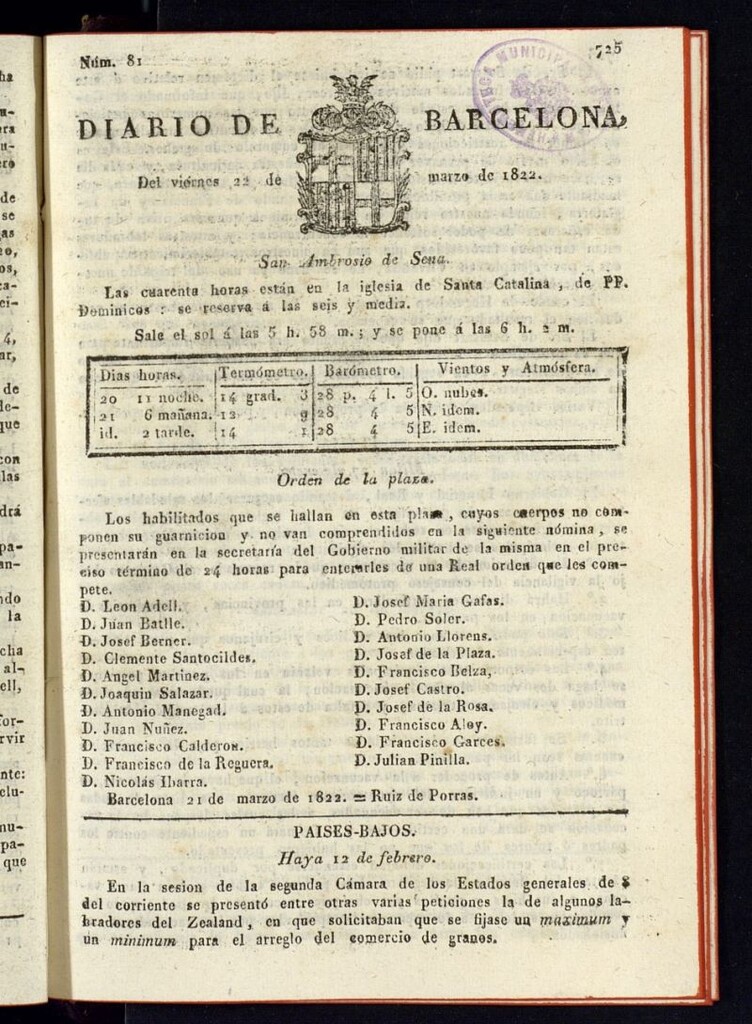 Núm. 81
725
DIARIO DE BARCELONA,
Del viérnes 22 de marzo de 1822.
San Ambrosio de Sena.
Las cuarenta horas están en la iglesia de Santa Catalina, de PP.
Dominicos: se reserva á las seis y media.
Sale el sol á las 5 h. 58 m.; y se pone á las 6 h. 2 m.
Dias horas. Termómetro. Barómetro. Vientos y Atmósfera.
20 11 noche. 14 grad. 3 28 p. 4 l. 5 O. nubes.
21 6 mañana. 12 9 28 4 5 N. idem.
id. 2 tarde. 14 1 28 4 5 E. idem.
Orden de la plaza.
Los habilitados que se hallan en esta plaza, cuyos cuerpos no com-
ponen su guarnicion y no van comprendidos en la siguiente nómina, se
presentarán en la secretaría del Gobierno militar de la misma en el pre-
ciso término de 24 horas para enterarles de una Real orden que les com-
pete.
D. Leon Adell.
D. Juan Batlle.
D. Josef Berner.
D. Clemente Santocildes.
D. Angel Martinez.
D. Joaquin Salazar.
D. Antonio Manegad.
D. Juan Nuñez.
D. Francisco Calderon.
D. Francisco de la Reguera.
D. Nicolás Ibarra.
D. Josef Maria Gafas.
D. Pedro Soler.
D. Antonio Llorens.
D. Josef de la Plaza.
D. Francisco Belza,
D. Josef Castro.
D. Josef de la Rosa.
D. Francisco Aloy.
D. Francisco Garces.
D. Julian Pinilla.
Barcelona 21 de marzo de 1822. = Ruiz de Porras.
PAISES-BAJOS.
Haya 12 de febrero.
En la sesion de la segunda Cámara de los Estados generales de 8
del corriente se presentó entre otras varias peticiones la de algunos la-
bradores del Zealand, en que solicitaban que se fijase un maximum y
un minimum para el arreglo del comercio de granos.